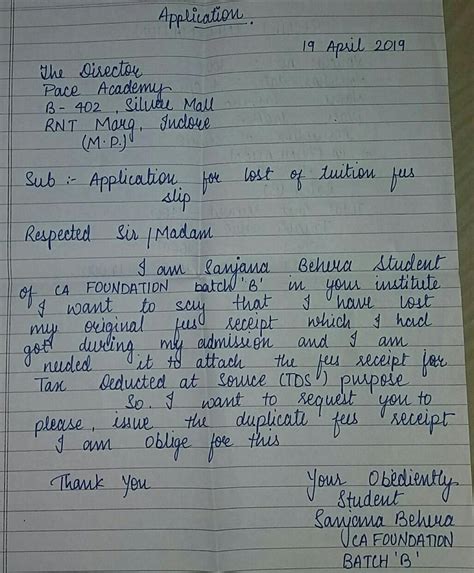 Application.
19 April 2019
The Director
Pace Academy
B-402, Silver Mall
RNT Marg, Indore
(M.P.)
Sub :- Application for lost of tuition fees
slip
Respected Sir/Madam
I am Sanjana Behera Student
of CA FOUNDATION batch 'B' in your institute
I want to say that I have lost
my original fees receipt which I had
got during my admission and I am
needed it to attach the fees receipt for
Tax Deducted at Source (TDS) purpose
So. I want to request you to
please, issue the duplicate fees receipt
I am oblige for this
Thank You
Your Obediently
Student
Sanjana Behera
CA FOUNDATION
BATCH 'B'